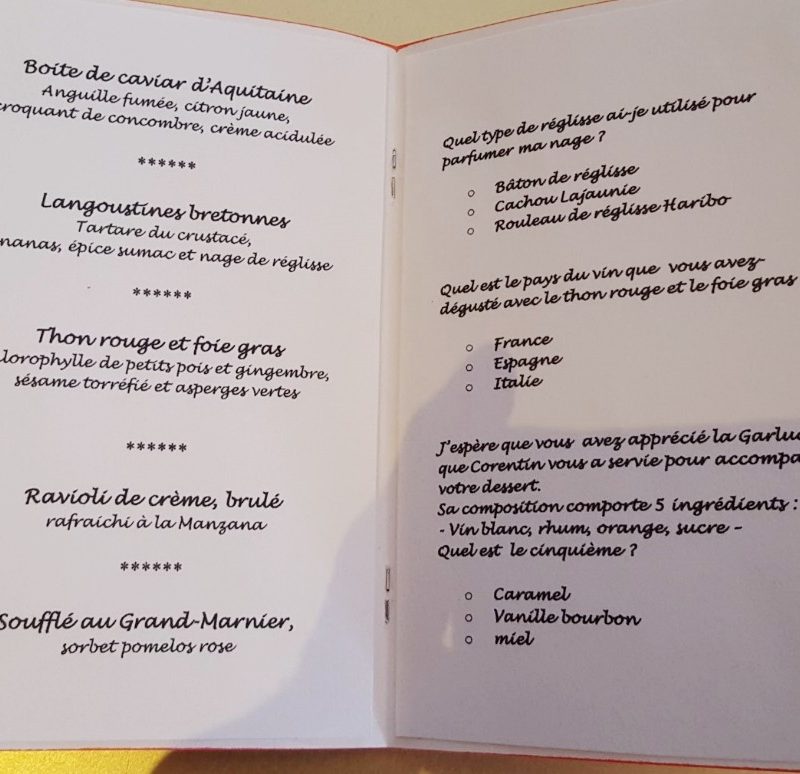 Boite de caviar d'Aquitaine
Anguille fumée, citron jaune,
croquant de concombre, crème acidulée
******
Langoustines bretonnes
Tartare du crustacé,
nanas, épice sumac et nage de réglisse
******
Thon rouge et foie gras
lorophylle de petits pois et gingembre,
sésame torréfié et asperges vertes
******
Ravioli de crème, brulé
rafraichi à la Manzana
******
Soufflé au Grand-Marnier,
sorbet pomelos rose
Quel type de réglisse ai-je utilisé pour
parfumer ma nage ?
Bâton de réglisse
Cachou Lajaunie
Rouleau de réglisse Haribo
Quel est le pays du vin que vous avez-
dégusté avec le thon rouge et le foie gras
France
Espagne
Italie
J'espère que vous avez apprécié la Garlu
que Corentin vous a servie pour accompa
votre dessert.
Sa composition comporte 5 ingrédients :
- Vin blanc, rhum, orange, sucre –
Quel est le cinquième ?
Caramel
Vanille bourbon
miel